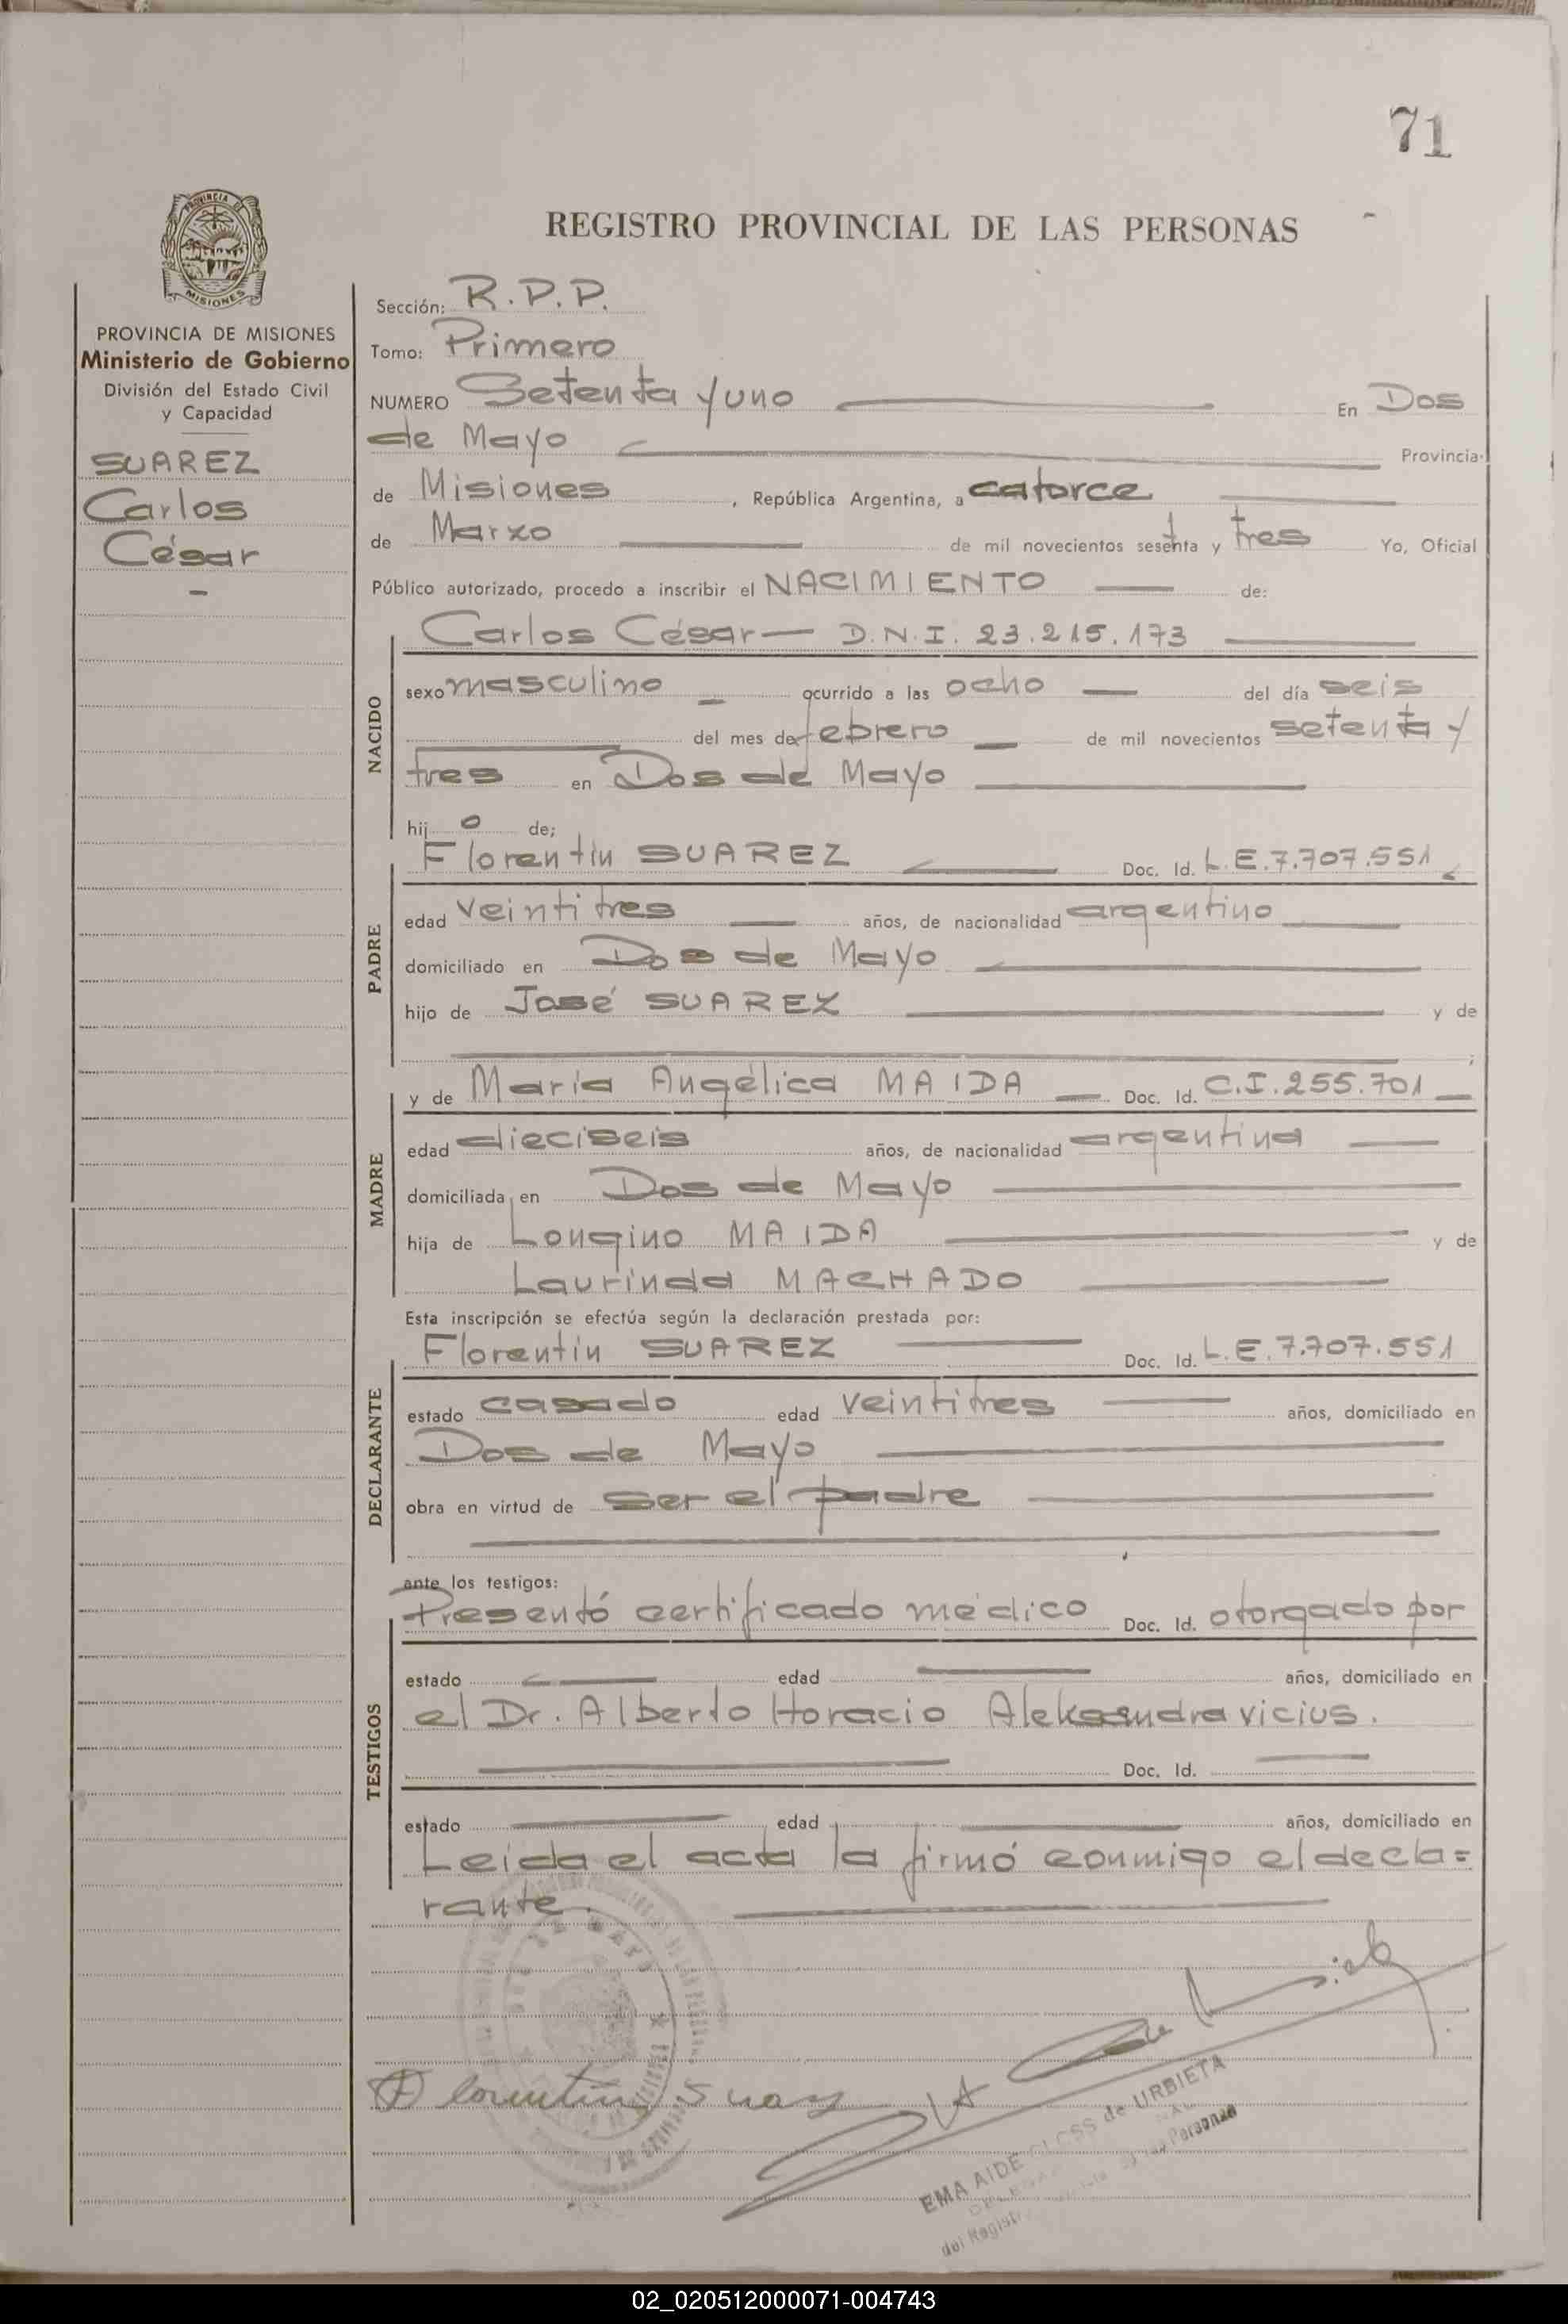 71
REGISTRO PROVINCIAL DE LAS PERSONAS
PROVINCIA DE
MISIONES
PROVINCIA DE MISIONES
Ministerio de Gobierno
División del Estado Civil
y Capacidad
SUAREZ
Carlos
César
Sección: R.P.P.
Tomo: Primero
NUMERO Setenta y uno En Dos
de Mayo Provincia
de Misiones, República Argentina, a catorce
de Marzo de mil novecientos sesenta y tres Yo, Oficial
Público autorizado, procedo a inscribir el NACIMIENTO de:
Carlos César — D.N.I. 23.215.173
NACIDO
sexo masculino ocurrido a las ocho del día seis
del mes de febrero de mil novecientos setenta y
tres en Dos de Mayo
hij o de;
Florentin SUAREZ Doc. Id. L.E.7.707.551
PADRE
edad veintitres años, de nacionalidad argentino
domiciliado en Dos de Mayo
hijo de José SUAREZ y de
;
y de María Angélica MAIDA Doc. Id. C.I.255.701
MADRE
edad dieciseis años, de nacionalidad argentina
domiciliada en Dos de Mayo
hija de Longino MAIDA y de
Laurinda MACHADO
Esta inscripción se efectúa según la declaración prestada por:
Florentin SUAREZ Doc. Id. L.E.7.707.551
DECLARANTE
estado casado edad veintitres años, domiciliado en
Dos de Mayo
obra en virtud de ser el padre
ante los testigos:
Presentó certificado médico Doc. Id. otorgado por
TESTIGOS
estado edad años, domiciliado en
el Dr. Alberto Horacio Aleksandravicius.
Doc. Id.
estado edad años, domiciliado en
Leida el acta la firmó conmigo el decla=
rante.
DOS DE MAYO
Florentin Suarez
EMA AIDE de URBIETA
del Registro Personas
02_020512000071-004743